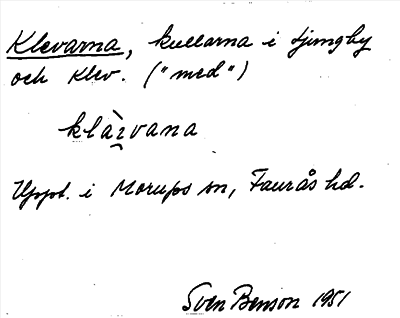 Klevarna, kullarna i Ljungby
och Klev. ("med")
klàᶎvana
Uppt. i Morups sn, Faurås hd.
Sven Benson 1951